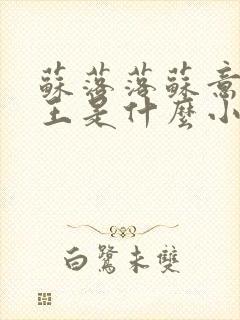 蘇落落蘇意
主是什麼小
白鷺未雙